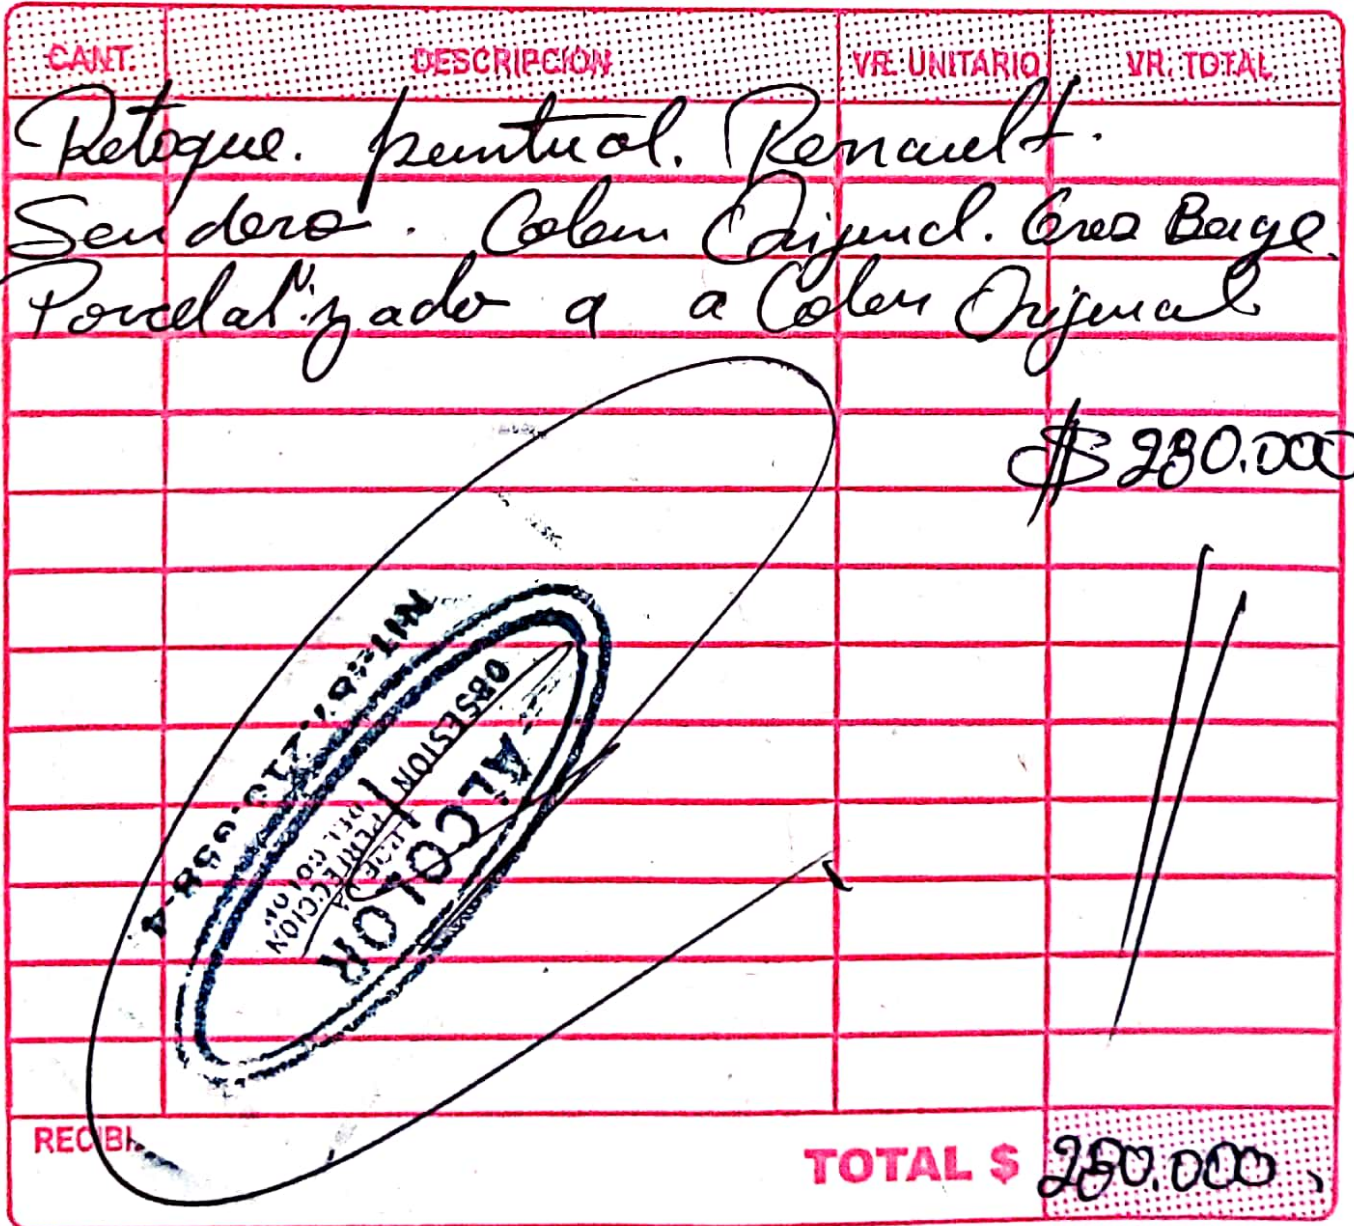 CANT. DESCRIPCIÓN VR. UNITARIO VR. TOTAL
Retoque. puntual. Renault.
Sendero. Color Original. Gris Beige.
Porcelalizado a a Color Original
$ 230.000
NIT:
OBSESION
ALCOLOR
PERFECCION
DEL COLOR
RECIBÍ
TOTAL $ 230.000